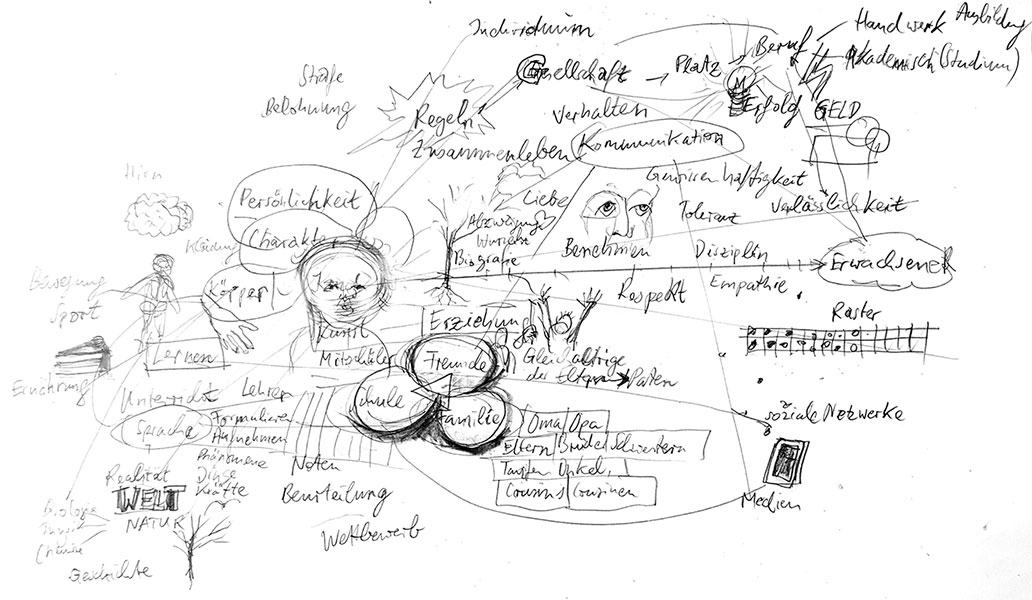 Individuum
Handwerk Ausbildung
Akademisch (Studium)
Beruf
Gesellschaft → Platz
Strafe
Belohnung
Regeln
Verhalten
Erfolg
GELD
Zusammenleben
Kommunikation
Hirn
Gewissenhaftigkeit
Persönlichkeit
Liebe
Toleranz
Verlässlichkeit
Kleidung
Charakter
Abzweigung
Wurzeln
Biografie
Benehmen
Disziplin
Erwachsener
Bewegung
Sport
Körper
Respekt
Empathie
Raster
Kunst
Erziehung
Lernen
Mitschüler
Freunde
Gleichaltrige
der Eltern
Paten
Ernährung
Unterricht
Lehrer
Schule
Familie
Oma Opa
soziale Netzwerke
Sprache
Formulieren
Aufnehmen
Eltern Bruder Schwestern
Phänomene
Dinge
Kräfte
Noten
Onkel,
Cousins Cousinen
Realität
WELT
NATUR
Beurteilung
Medien
Biologie
Chemie
Wettbewerb
Geschichte